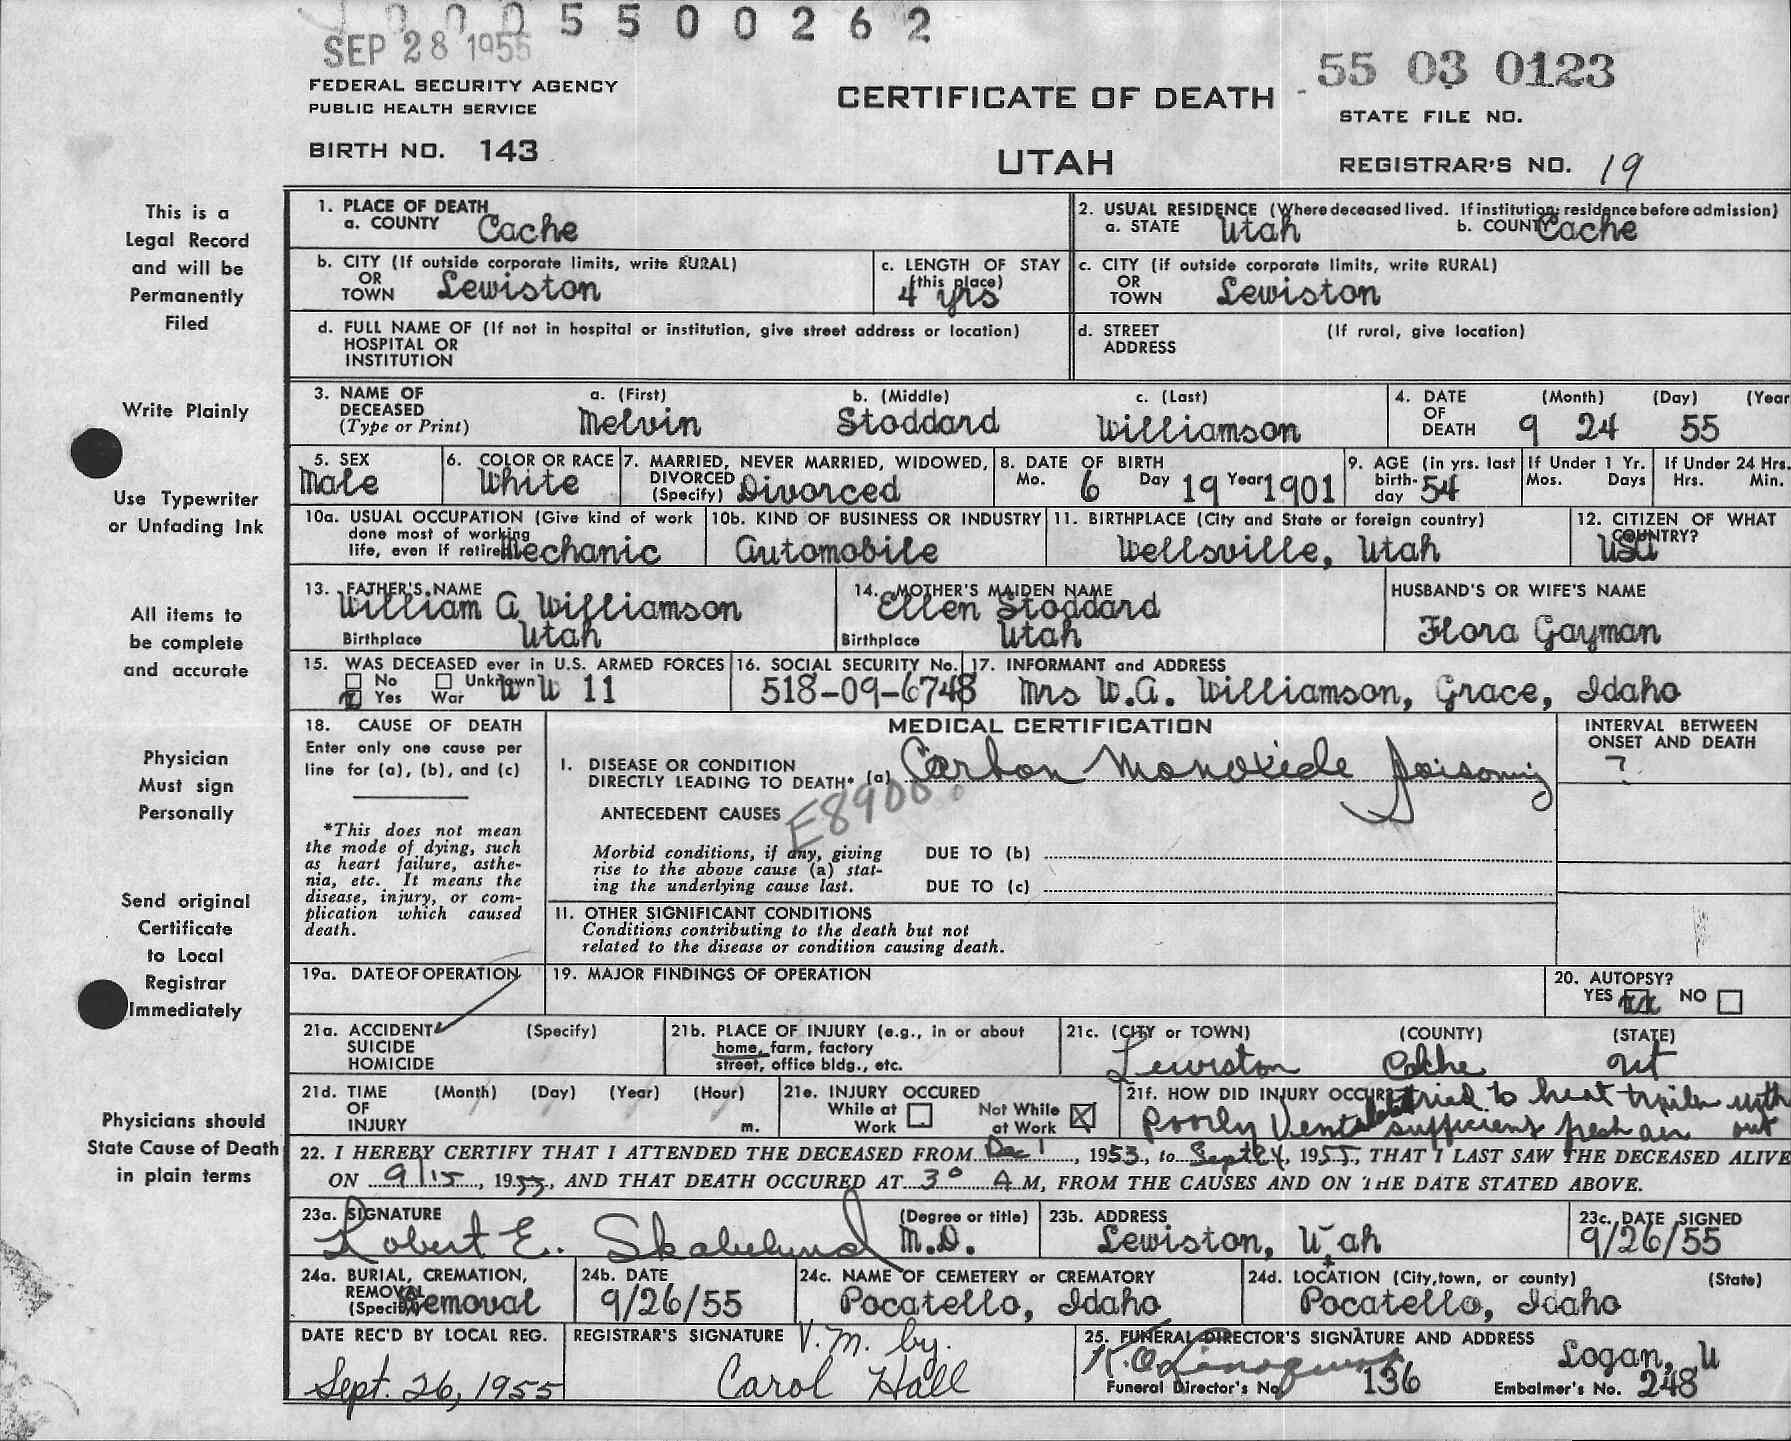 0005500262
SEP 28 1955
55 03 0123
FEDERAL SECURITY AGENCY
PUBLIC HEALTH SERVICE
CERTIFICATE OF DEATH
STATE FILE NO.
BIRTH NO. 143
UTAH
REGISTRAR'S NO. 19
This is a
Legal Record
and will be
Permanently
Filed
Write Plainly
Use Typewriter
or Unfading Ink
All items to
be complete
and accurate
Physician
Must sign
Personally
Send original
Certificate
to Local
Registrar
Immediately
Physicians should
State Cause of Death
in plain terms
1. PLACE OF DEATH
a. COUNTY Cache
2. USUAL RESIDENCE (Where deceased lived. If institution: residence before admission)
a. STATE Utah b. COUNTY Cache
b. CITY (If outside corporate limits, write RURAL)
OR
TOWN Lewiston
c. LENGTH OF STAY
(this place)
4 yrs
c. CITY (if outside corporate limits, write RURAL)
OR
TOWN Lewiston
d. FULL NAME OF (If not in hospital or institution, give street address or location)
HOSPITAL OR
INSTITUTION
d. STREET (If rural, give location)
ADDRESS
3. NAME OF DECEASED (Type or Print)
a. (First) b. (Middle) c. (Last)
Melvin Stoddard Williamson
4. DATE OF DEATH (Month) (Day) (Year
9 24 55
5. SEX
Male
6. COLOR OR RACE
White
7. MARRIED, NEVER MARRIED, WIDOWED,
DIVORCED
(Specify) Divorced
8. DATE OF BIRTH
Mo. 6 Day 19 Year 1901
9. AGE (in yrs. last
birth-
day 54
If Under 1 Yr.
Mos. Days
If Under 24 Hrs.
Hrs. Min.
10a. USUAL OCCUPATION (Give kind of work
done most of working
life, even if retired Mechanic
10b. KIND OF BUSINESS OR INDUSTRY
Automobile
11. BIRTHPLACE (City and State or foreign country)
Wellsville, Utah
12. CITIZEN OF WHAT
COUNTRY?
USA
13. FATHER'S NAME
William A Williamson
Birthplace Utah
14. MOTHER'S MAIDEN NAME
Ellen Stoddard
Birthplace Utah
HUSBAND'S OR WIFE'S NAME
Flora Gayman
15. WAS DECEASED ever in U.S. ARMED FORCES
No Unknown
Yes War W W 11
16. SOCIAL SECURITY No.
518-09-6748
17. INFORMANT and ADDRESS
Mrs W.A. Williamson, Grace, Idaho
18. CAUSE OF DEATH
Enter only one cause per
line for (a), (b), and (c)
*This does not mean
the mode of dying, such
as heart failure, asthe-
nia, etc. It means the
disease, injury, or com-
plication which caused
death.
MEDICAL CERTIFICATION
INTERVAL BETWEEN
ONSET AND DEATH
?
I. DISEASE OR CONDITION
DIRECTLY LEADING TO DEATH* (a) Carbon Monoxide Poisoning
ANTECEDENT CAUSES
Morbid conditions, if any, giving
rise to the above cause (a) stat-
ing the underlying cause last.
DUE TO (b)
DUE TO (c)
11. OTHER SIGNIFICANT CONDITIONS
Conditions contributing to the death but not
related to the disease or condition causing death.
19a. DATE OF OPERATION
19. MAJOR FINDINGS OF OPERATION
20. AUTOPSY?
YES xx NO
21a. ACCIDENT (Specify)
SUICIDE
HOMICIDE
21b. PLACE OF INJURY (e.g., in or about
home, farm, factory
street, office bldg., etc.
21c. (CITY or TOWN) (COUNTY) (STATE)
Lewiston Cache Ut
21d. TIME (Month) (Day) (Year) (Hour)
OF
INJURY m.
21e. INJURY OCCURED
While at Work Not While at Work
21f. HOW DID INJURY OCCUR?
tried to heat trailer with
Poorly sufficient fresh air out
22. I HEREBY CERTIFY THAT I ATTENDED THE DECEASED FROM Dec 1, 1953, to Sept 24, 1955, THAT I LAST SAW THE DECEASED ALIVE
ON 9/15, 1955, AND THAT DEATH OCCURED AT 3⁰ A M, FROM THE CAUSES AND ON THE DATE STATED ABOVE.
23a. SIGNATURE (Degree or title)
Robert E. Skabelund M.D.
23b. ADDRESS
Lewiston, Utah
23c. DATE SIGNED
9/26/55
24a. BURIAL, CREMATION,
REMOVAL
(Specify) Removal
24b. DATE
9/26/55
24c. NAME OF CEMETERY or CREMATORY
Pocatello, Idaho
24d. LOCATION (City, town, or county) (State)
Pocatello, Idaho
DATE REC'D BY LOCAL REG.
Sept. 26, 1955
REGISTRAR'S SIGNATURE V.M. by.
Carol Hall
25. FUNERAL DIRECTOR'S SIGNATURE AND ADDRESS
Logan, U
Funeral Director's No. 136 Embalmer's No. 248